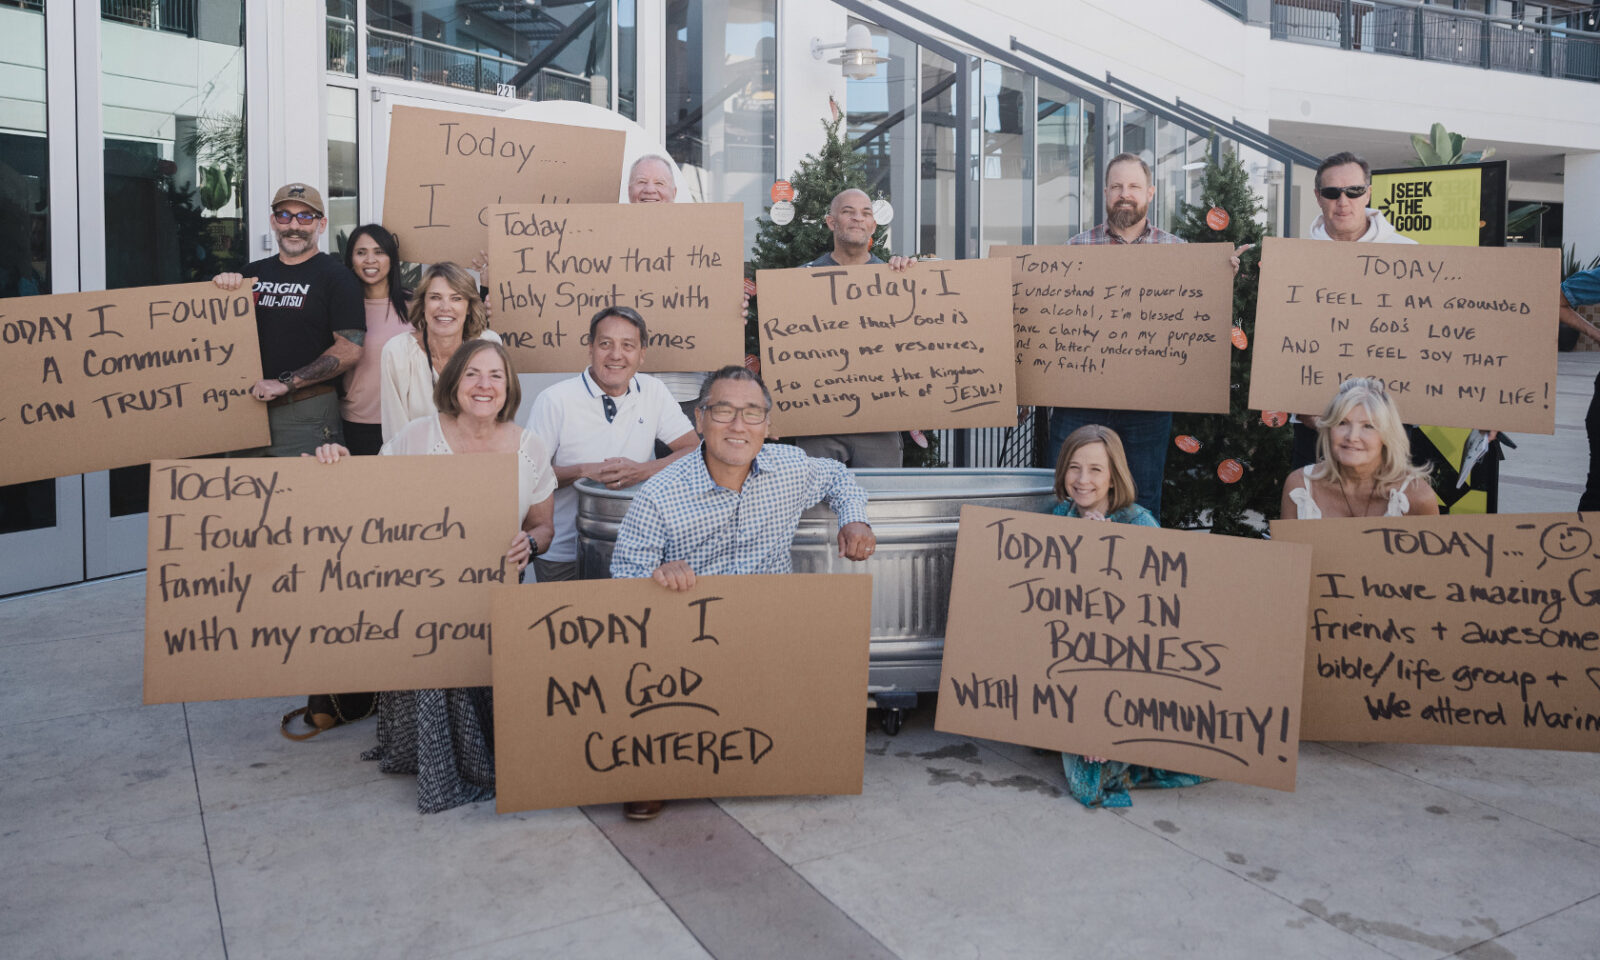 221
Today.....
I
Today...
I Know that the
Holy Spirit is with
me at times
ORIGIN
JIU-JITSU
TODAY I FOUND
A Community
I CAN TRUST Again
Today, I
Realize that God is
loaning me resources,
to continue the kingdom
building work of JESUS!
TODAY:
I understand I'm powerless
to alcohol, I'm blessed to
have clarity on my purpose
and a better understanding
of my faith!
TODAY...
I FEEL I AM GROUNDED
IN GOD'S LOVE
AND I FEEL JOY THAT
HE IS BACK IN MY LIFE!
SEEK
THE
GOOD
Today...
I found my Church
family at Mariners and
with my rooted group
TODAY I
AM GOD
CENTERED
TODAY I AM
JOINED IN
BOLDNESS
WITH MY COMMUNITY!
TODAY...
I have amazing G
friends + awesome
bible/life group +
We attend Marin